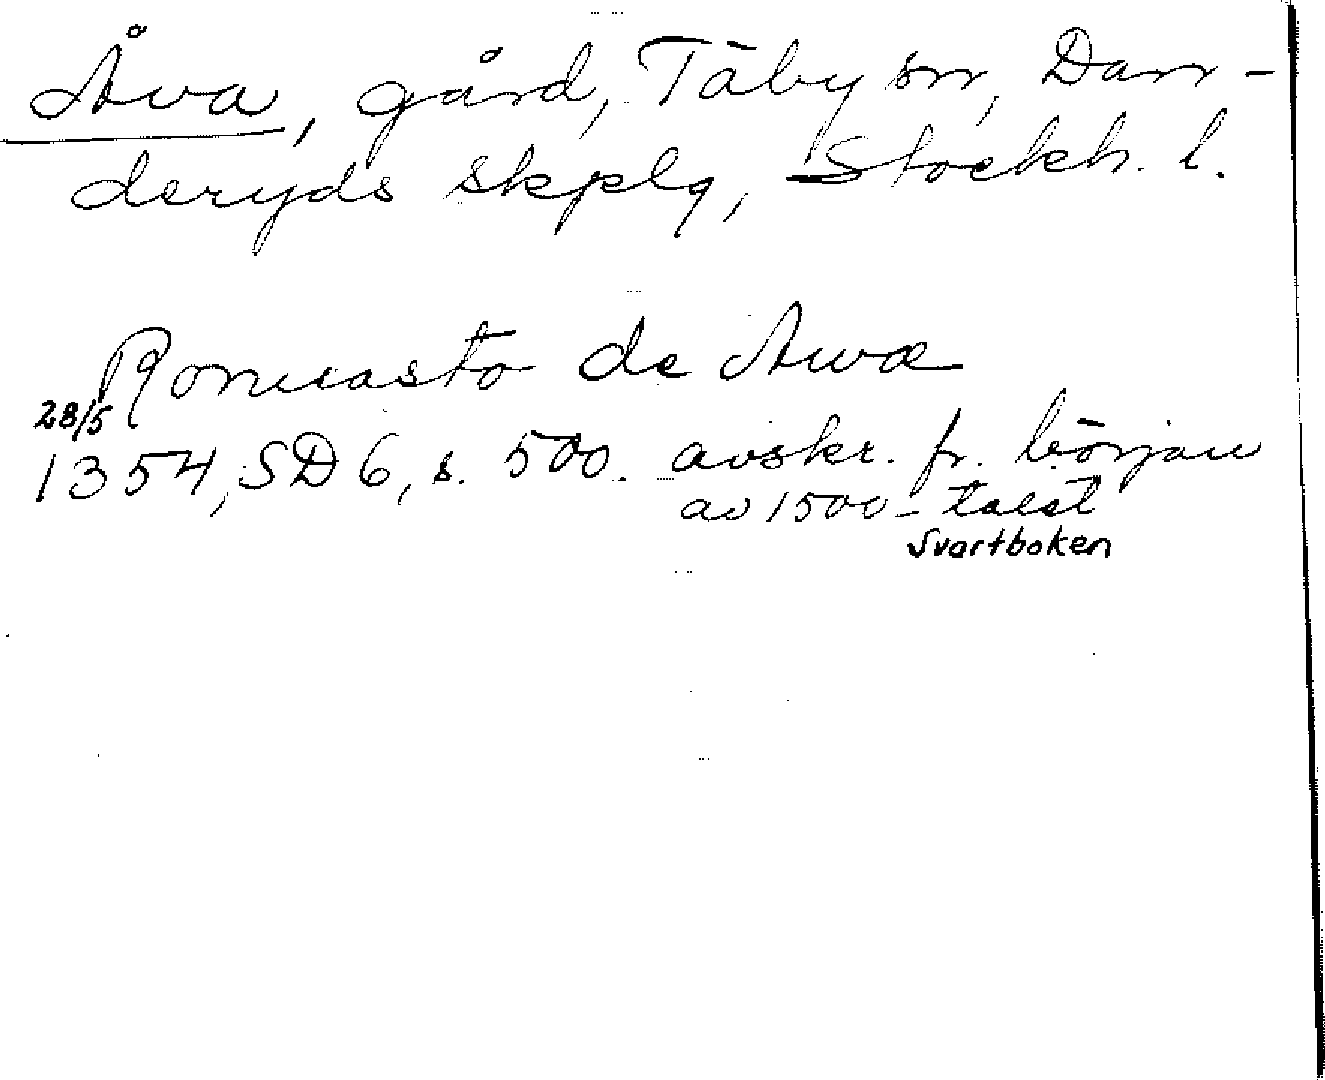 Åva, gård, Täby sn, Dan-
deryds skplg, Stockh. l.
Romasto de Awæ
28/5
1354, SD 6, s. 500. avskr. fr. början
av 1500-talet
Svartboken